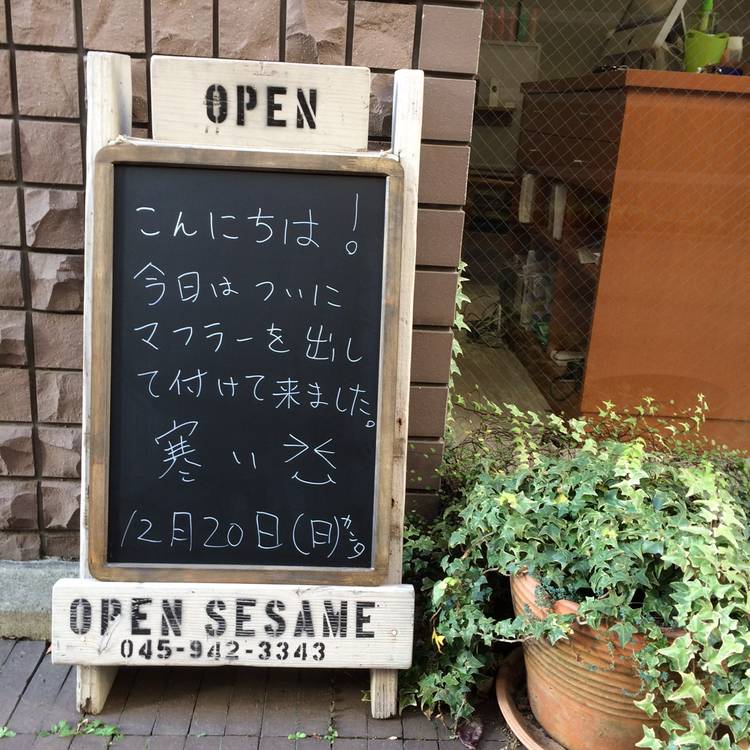 OPEN
こんにちは!
今日は ついに
マフラーを出し
て付けて来ました。
寒い
12月20日(日)カンタ
OPEN SESAME
045-942-3343